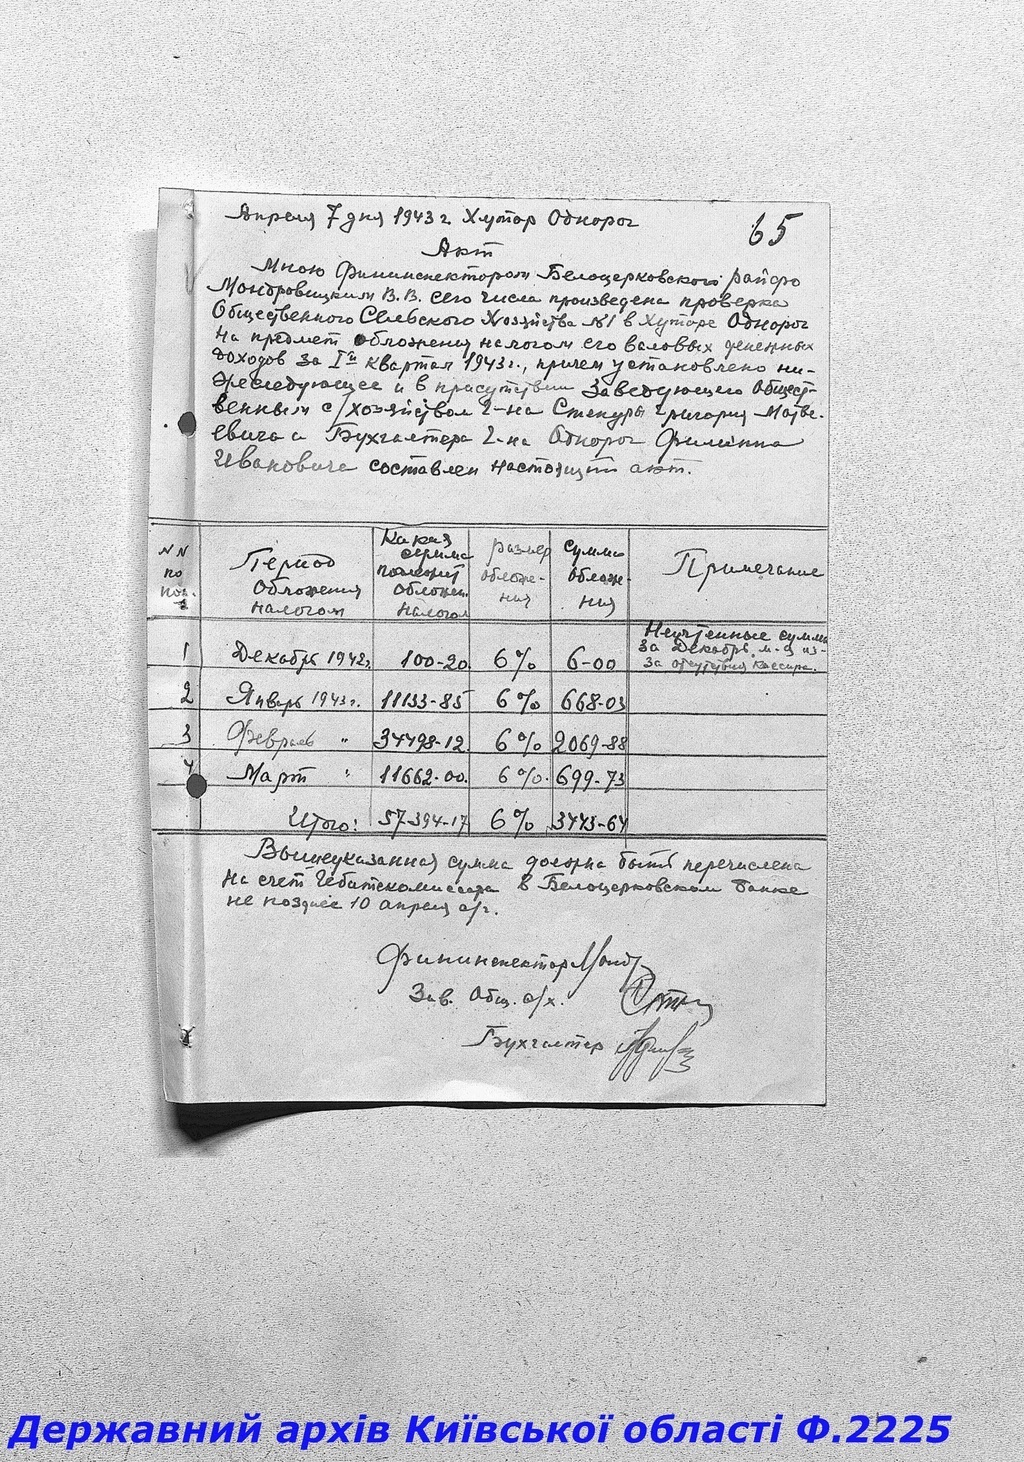 Апреля 7 дня 1943 г. Хутор Однорог
65
Акт
Мною Фининспектором Белоцерковского райфо
Мондровицким В.В. сего числа произведена проверка
Общественного Сельского Хозяйства №1 в Хуторе Однорог
на предмет обложения налогом его валовых денежных
доходов за Iй квартал 1943 г., причем установлено ни-
жеследующее и в присутствии Заведующего Общест-
венным с/хозяйством г-на Стенуры Григория Матве-
евича и Бухгалтера г-на Однорог Филиппа
Ивановича составлен настоящий акт.
NN по пор. Период обложения налогом Какая сумма подлежит обложен. налогом размер обложе-ния Сумма обложе-ния Примечание
1 Декабрь 1942 г. 100-20 6% 6-00 Неучтенные суммы за Декабрь м-ц из-за отсутствия кассира.
2 Январь 1943 г. 11133-85 6% 668-03
3 Февраль " 34498-12 6% 2069-88
4 Март " 11662-00 6% 699-73
Итого: 57394-17 6% 3443-64
Вышеуказанная сумма должна быть перечислена
на счет Гебитскомиссара в Белоцерковском банке
не позднее 10 апреля с/г.
Фининспектор
Зав. Общ. с/х.
Бухгалтер
Державний архів Київської області Ф.2225